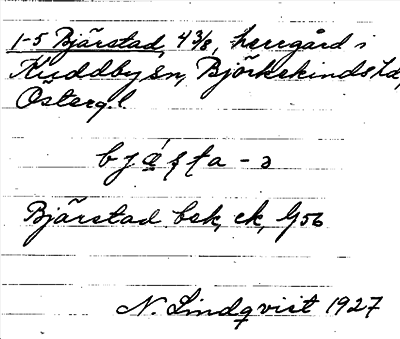 1-5 Bjärstad, 4 3/8, herrgård i
Kuddby sn, Björkekinds hd,
Österg.l.
bjǽsta - ə
Bjärstad bsk, ek, G56
N. Lindqvist 1927